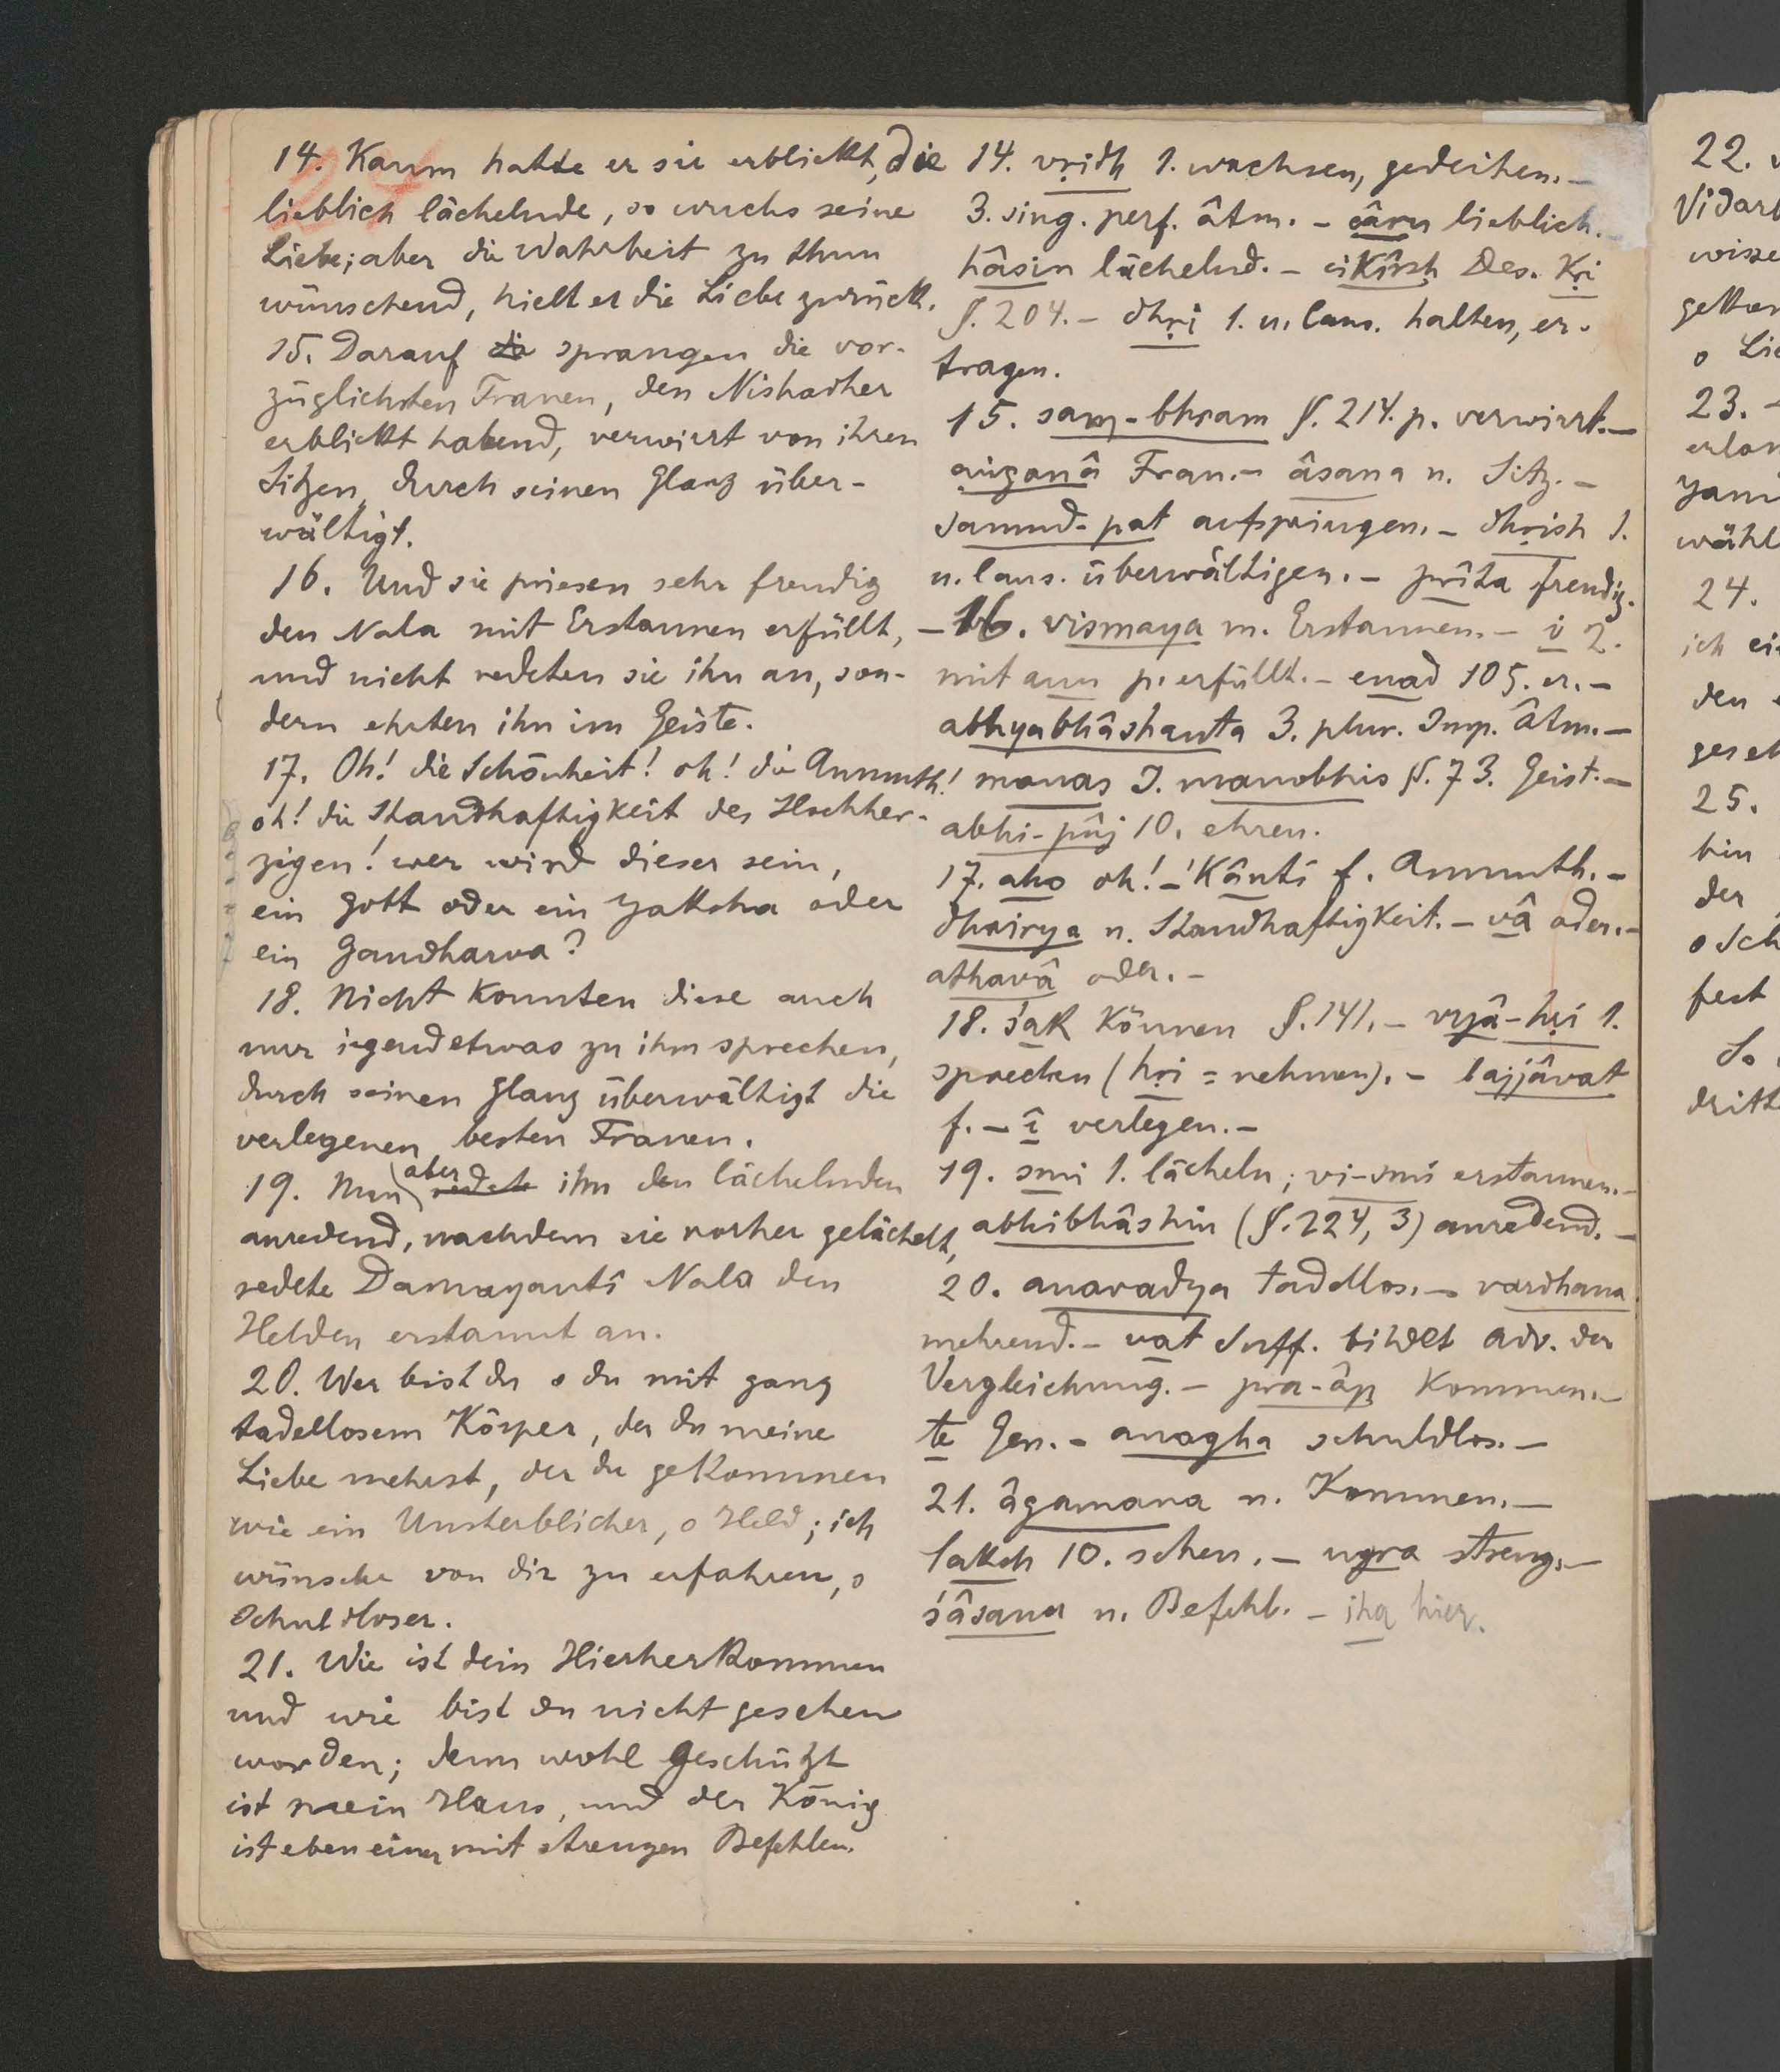 14. Kaum hatte er sie erblickt, die
lieblich lächelnde, so wuchs seine
Liebe; aber die Wahrheit zu thun
wünschend, hielt er die Liebe zurück.
15. Darauf sprangen die vor-
züglichsten Frauen, den Nishadher
erblickt habend, verwirrt von ihren
Sitzen, durch seinen Glanz über-
wältigt.
16. Und sie priesen sehr freudig
den Nala mit Erstaunen erfüllt,
und nicht redeten sie ihn an, son-
dern ehrten ihn im Geiste.
17. Oh! die Schönheit! oh! die Anmuth!
oh! die Standhaftigkeit des Hochher-
zigen! wer wird dieser sein,
ein Gott oder ein Yaksha oder
ein Gandharva?
18. Nicht konnten diese auch
nur irgendetwas zu ihm sprechen,
durch seinen Glanz überwältigt die
verlegenen besten Frauen.
19. Nun aber redete ihn den lächelnden
anredend, nachdem sie vorher gelächelt,
redete Damayantî Nala den
Helden erstaunt an.
20. Wer bist du o du mit ganz
tadellosem Körper, der du meine
Liebe mehrst, der du gekommen
wie ein Unsterblicher, o Held; ich
wünsche von dir zu erfahren, o
Schuldloser.
21. Wie ist dein Hierherkommen
und wie bist du nicht gesehen
worden; denn wohl geschützt
ist mein Haus, und der König
ist eben einer mit strengen Befehlen.
14. vṛidh 1. wachsen, gedeihen. –
3. sing. perf. âtm. – câru lieblich. –
hâsin lächelnd. – cikîrsh Des. kṛi
§. 204. – dhṛi 1. u. Caus. halten, er-
tragen.
15. saṃ-bhram §. 214. p. verwirrt. –
aṅganâ Frau. – âsana n. Sitz. –
samud-pat aufspringen. – dhṛish 1.
u. Caus. überwältigen. – prîta freudig.
– 16. vismaya m. Erstaunen. – i 2.
mit anu p. erfüllt. – enad 105. er. –
abhyabhâshanta 3. plur. Imp. âtm. –
manas I. manobhis §. 73. Geist. –
abhi-pûj 10. ehren.
17. aho oh! – kânti f. Anmuth. –
dhairya n. Standhaftigkeit. – vâ oder. –
athavâ oder. –
18. śak können §. 141. – vyâ-hṛi 1.
sprechen (hṛi = nehmen). – lajjâvat
f. – î verlegen. –
19. smi 1. lächeln; vi-smi erstaunen. –
abhibhâshin (§. 224, 3) anredend. –
20. anavadya tadellos. – vardhana
mehrend. – vat Suff. bildet Adv. der
Vergleichung. – pra-âp kommen. –
te Gen. – anagha schuldlos. –
21. âgamana n. Kommen. –
laksh 10. sehen. – ugra streng. –
śâsana n. Befehl. – iha hier.
22.
Vidar
wisse
gekom
o Lie
23. –
erlan
yam
wähl
24.
ich ei
den
geseh
25.
bin
der
o Sch
fest
So
dritt